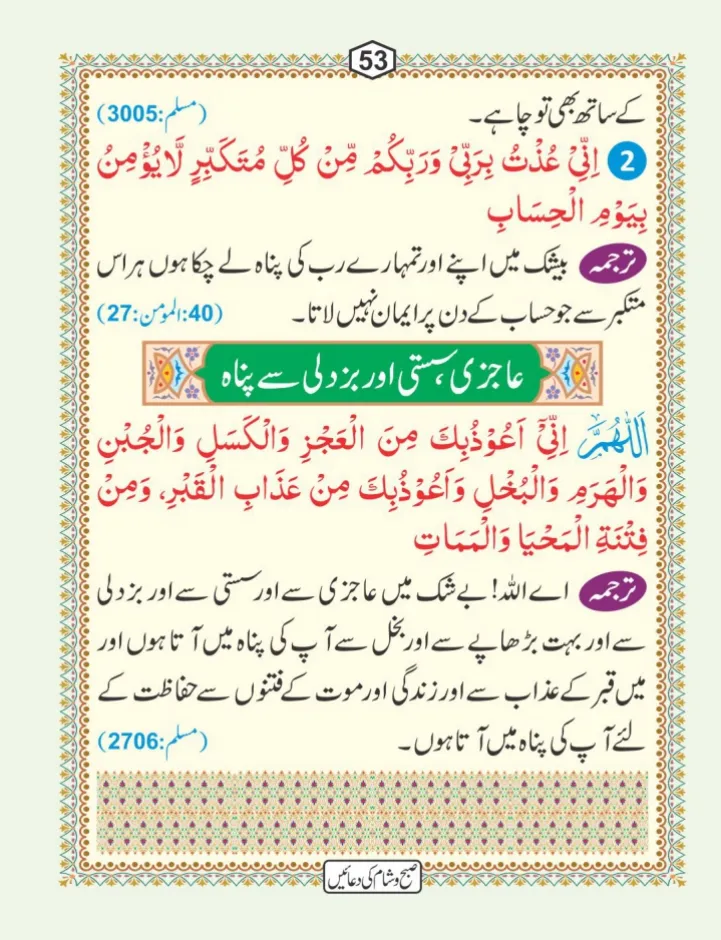 53
کے ساتھ بھی تو چاہے۔ (مسلم:3005)
2 اِنِّیْ عُذْتُ بِرَبِّیْ وَرَبِّکُمْ مِّنْ کُلِّ مُتَکَبِّرٍ لَّا یُؤْمِنُ
بِیَوْمِ الْحِسَابِ
ترجمہ بیشک میں اپنے اور تمہارے رب کی پناہ لے چکا ہوں ہر اس
متکبر سے جو حساب کے دن پر ایمان نہیں لاتا۔ (40:المؤمن:27)
عاجزی، سستی اور بزدلی سے پناہ
اَللّٰهُمَّ اِنِّیْٓ اَعُوْذُبِكَ مِنَ الْعَجْزِ وَالْکَسَلِ وَالْجُبْنِ
وَالْهَرَمِ وَالْبُخْلِ وَاَعُوْذُبِكَ مِنْ عَذَابِ الْقَبْرِ، وَمِنْ
فِتْنَةِ الْمَحْیَا وَالْمَمَاتِ
ترجمہ اے اللہ! بے شک میں عاجزی سے اور سستی سے اور بزدلی
سے اور بہت بڑھاپے سے اور بخل سے آپ کی پناہ میں آتا ہوں اور
میں قبر کے عذاب سے اور زندگی اور موت کے فتنوں سے حفاظت کے
لئے آپ کی پناہ میں آتا ہوں۔ (مسلم:2706)
صبح و شام کی دعائیں